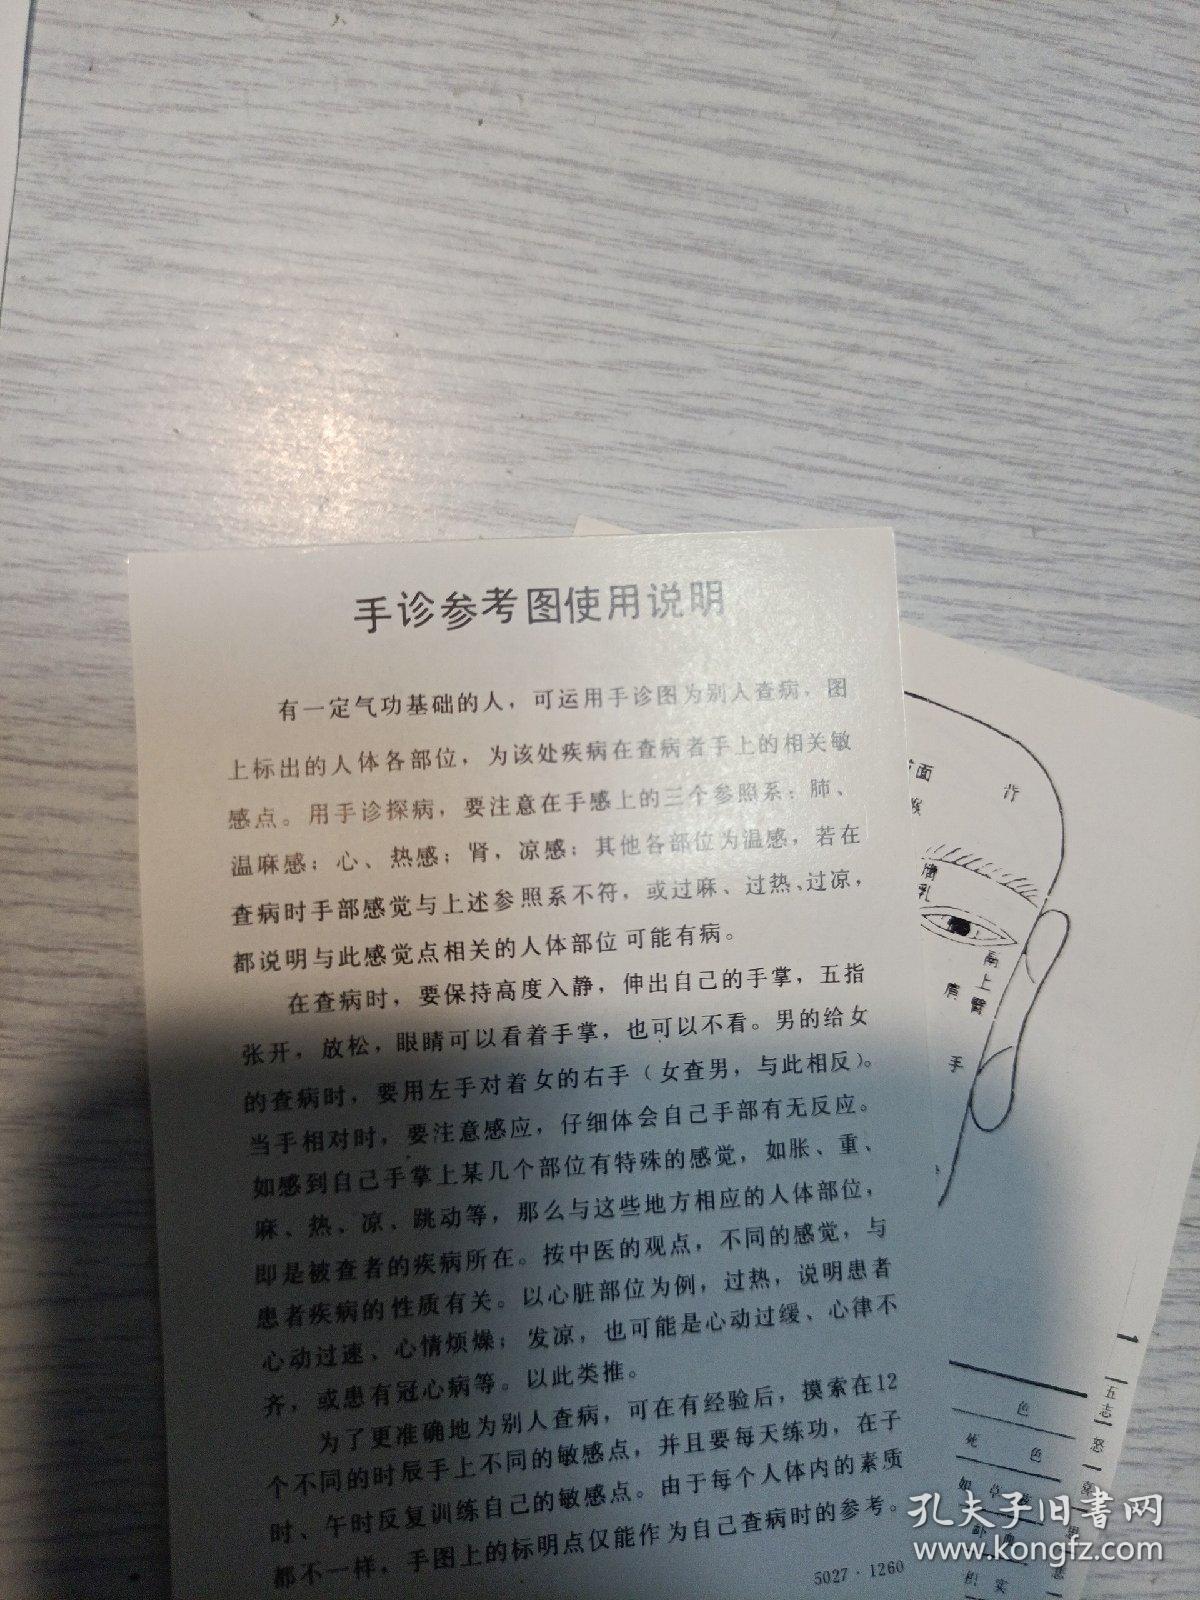 手诊参考图使用说明
有一定气功基础的人，可运用手诊图为别人查病，图
上标出的人体各部位，为该处疾病在查病者手上的相关敏
感点。用手诊探病，要注意在手感上的三个参照系：肺、
温麻感；心、热感；肾，凉感；其他各部位为温感，若在
查病时手部感觉与上述参照系不符，或过麻、过热、过凉，
都说明与此感觉点相关的人体部位可能有病。
在查病时，要保持高度入静，伸出自己的手掌，五指
张开，放松，眼睛可以看着手掌，也可以不看。男的给女
的查病时，要用左手对着女的右手（女查男，与此相反）。
当手相对时，要注意感应，仔细体会自己手部有无反应。
如感到自己手掌上某几个部位有特殊的感觉，如胀、重、
麻、热、凉、跳动等，那么与这些地方相应的人体部位，
即是被查者的疾病所在。按中医的观点，不同的感觉，与
患者疾病的性质有关。以心脏部位为例，过热，说明患者
心动过速、心情烦燥；发凉，也可能是心动过缓、心律不
齐，或患有冠心病等。以此类推。
为了更准确地为别人查病，可在有经验后，摸索在12
个不同的时辰手上不同的敏感点，并且要每天练功，在子
时、午时反复训练自己的敏感点。由于每个人体内的素质
都不一样，手图上的标明点仅能作为自己查病时的参考。
5027·1260
面
背
乳
肩
上
臂
手
五志
色
怒
死 色
如 草
实
孔夫子旧书网
www.kongfz.com